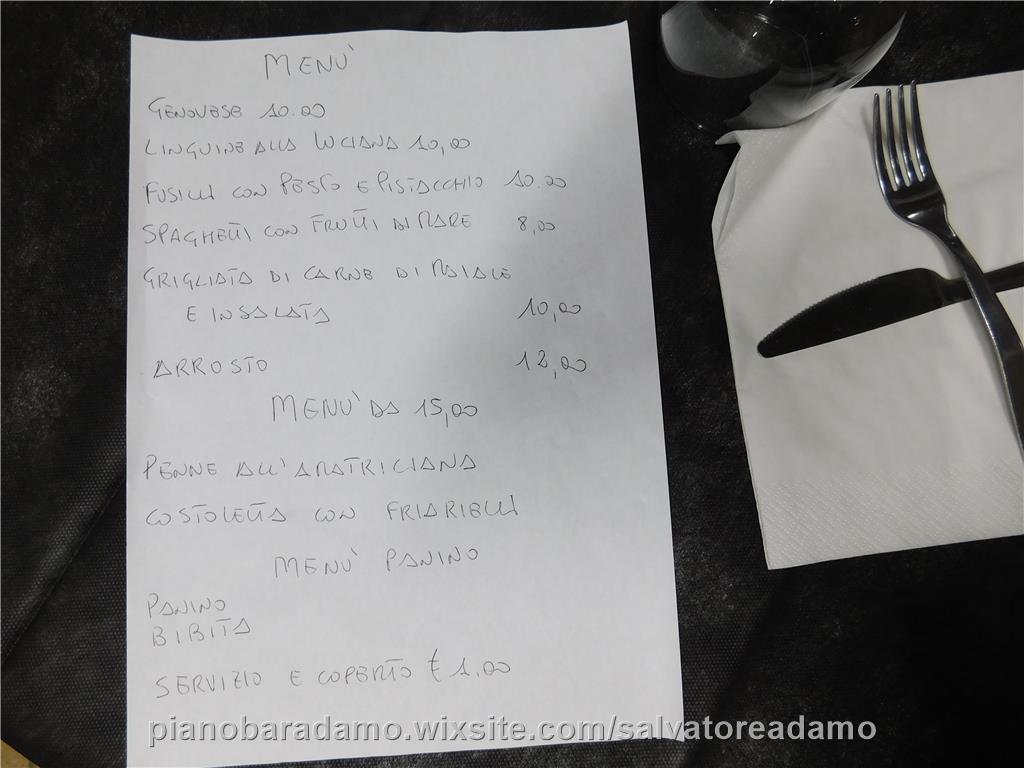 MENU'
GENOVESE 10.00
LINGUINE ALLA LUCIANA 10,00
FUSILLI CON PESTO E PISTACCHIO 10.00
SPAGHETTI CON FRUTTI DI MARE 8,00
GRIGLIATA DI CARNE DI MAIALE
E INSALATA 10,00
ARROSTO 12,00
MENU' DA 15,00
PENNE ALL'AMATRICIANA
COSTOLETTA CON FRIARIELLI
MENU' PANINO
PANINO
BIBITA
SERVIZIO E COPERTO € 1.00
pianobaradamo.wixsite.com/salvatoreadamo